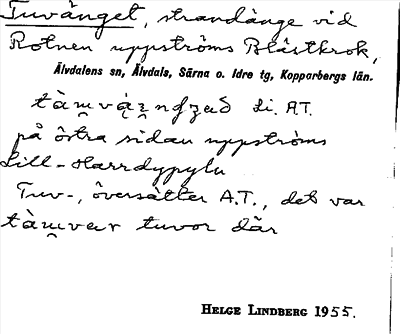 Tuvänget, strandänge vid
Rotnen uppströms Blästkrok,
Älvdalens sn, Älvdals, Särna o. Idre tg, Kopparbergs län.
Li. A.T.
på östra sidan uppströms
Lill-Harrdypyln
Tuv-, översätter A.T., det var
tuvor där
HELGE LINDBERG 1955.